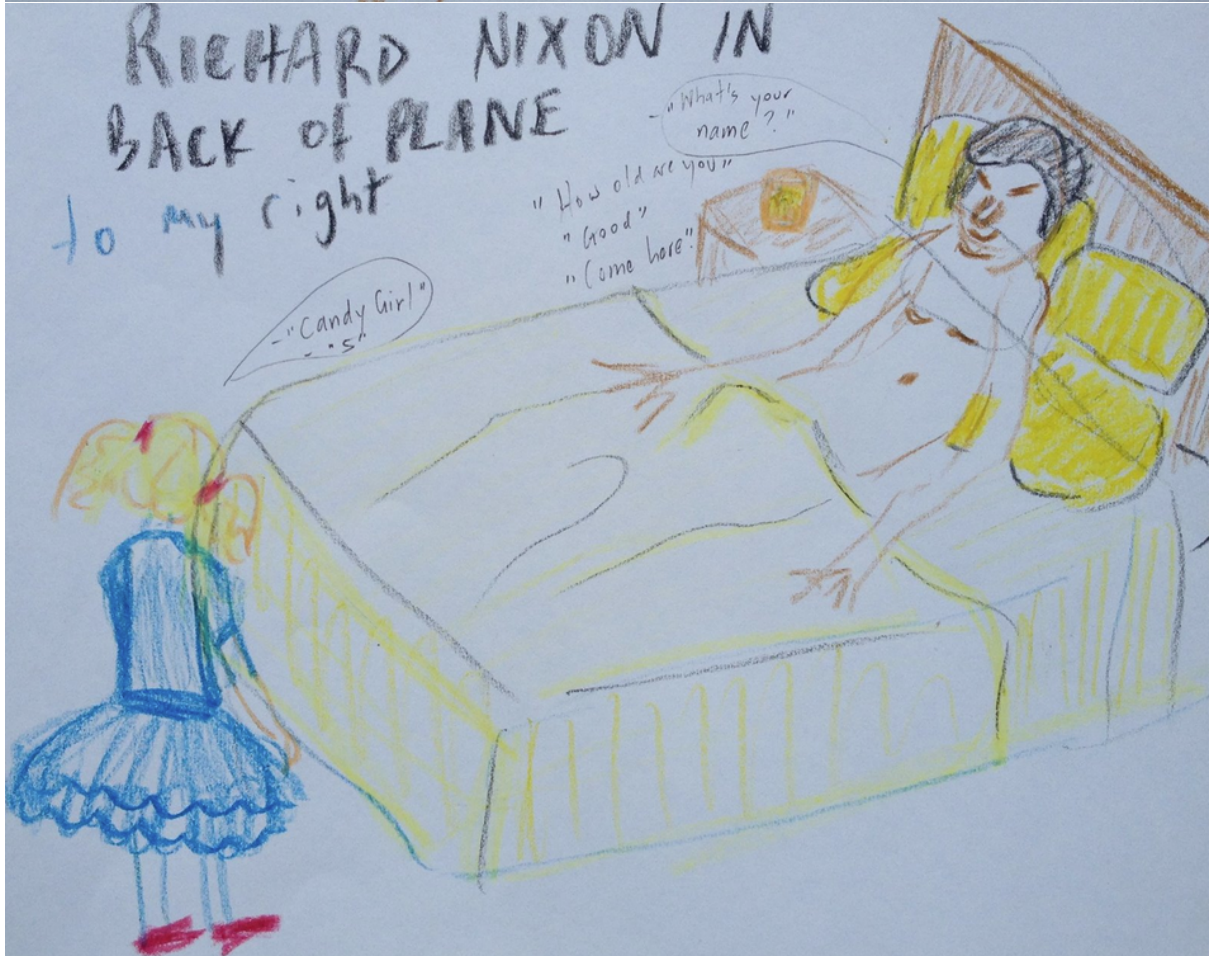 RICHARD NIXON IN
BACK of PLANE
to my right
-"What's your
name?"
"How old are you"
"Good"
"Come here"
-"Candy Girl"
-"5"